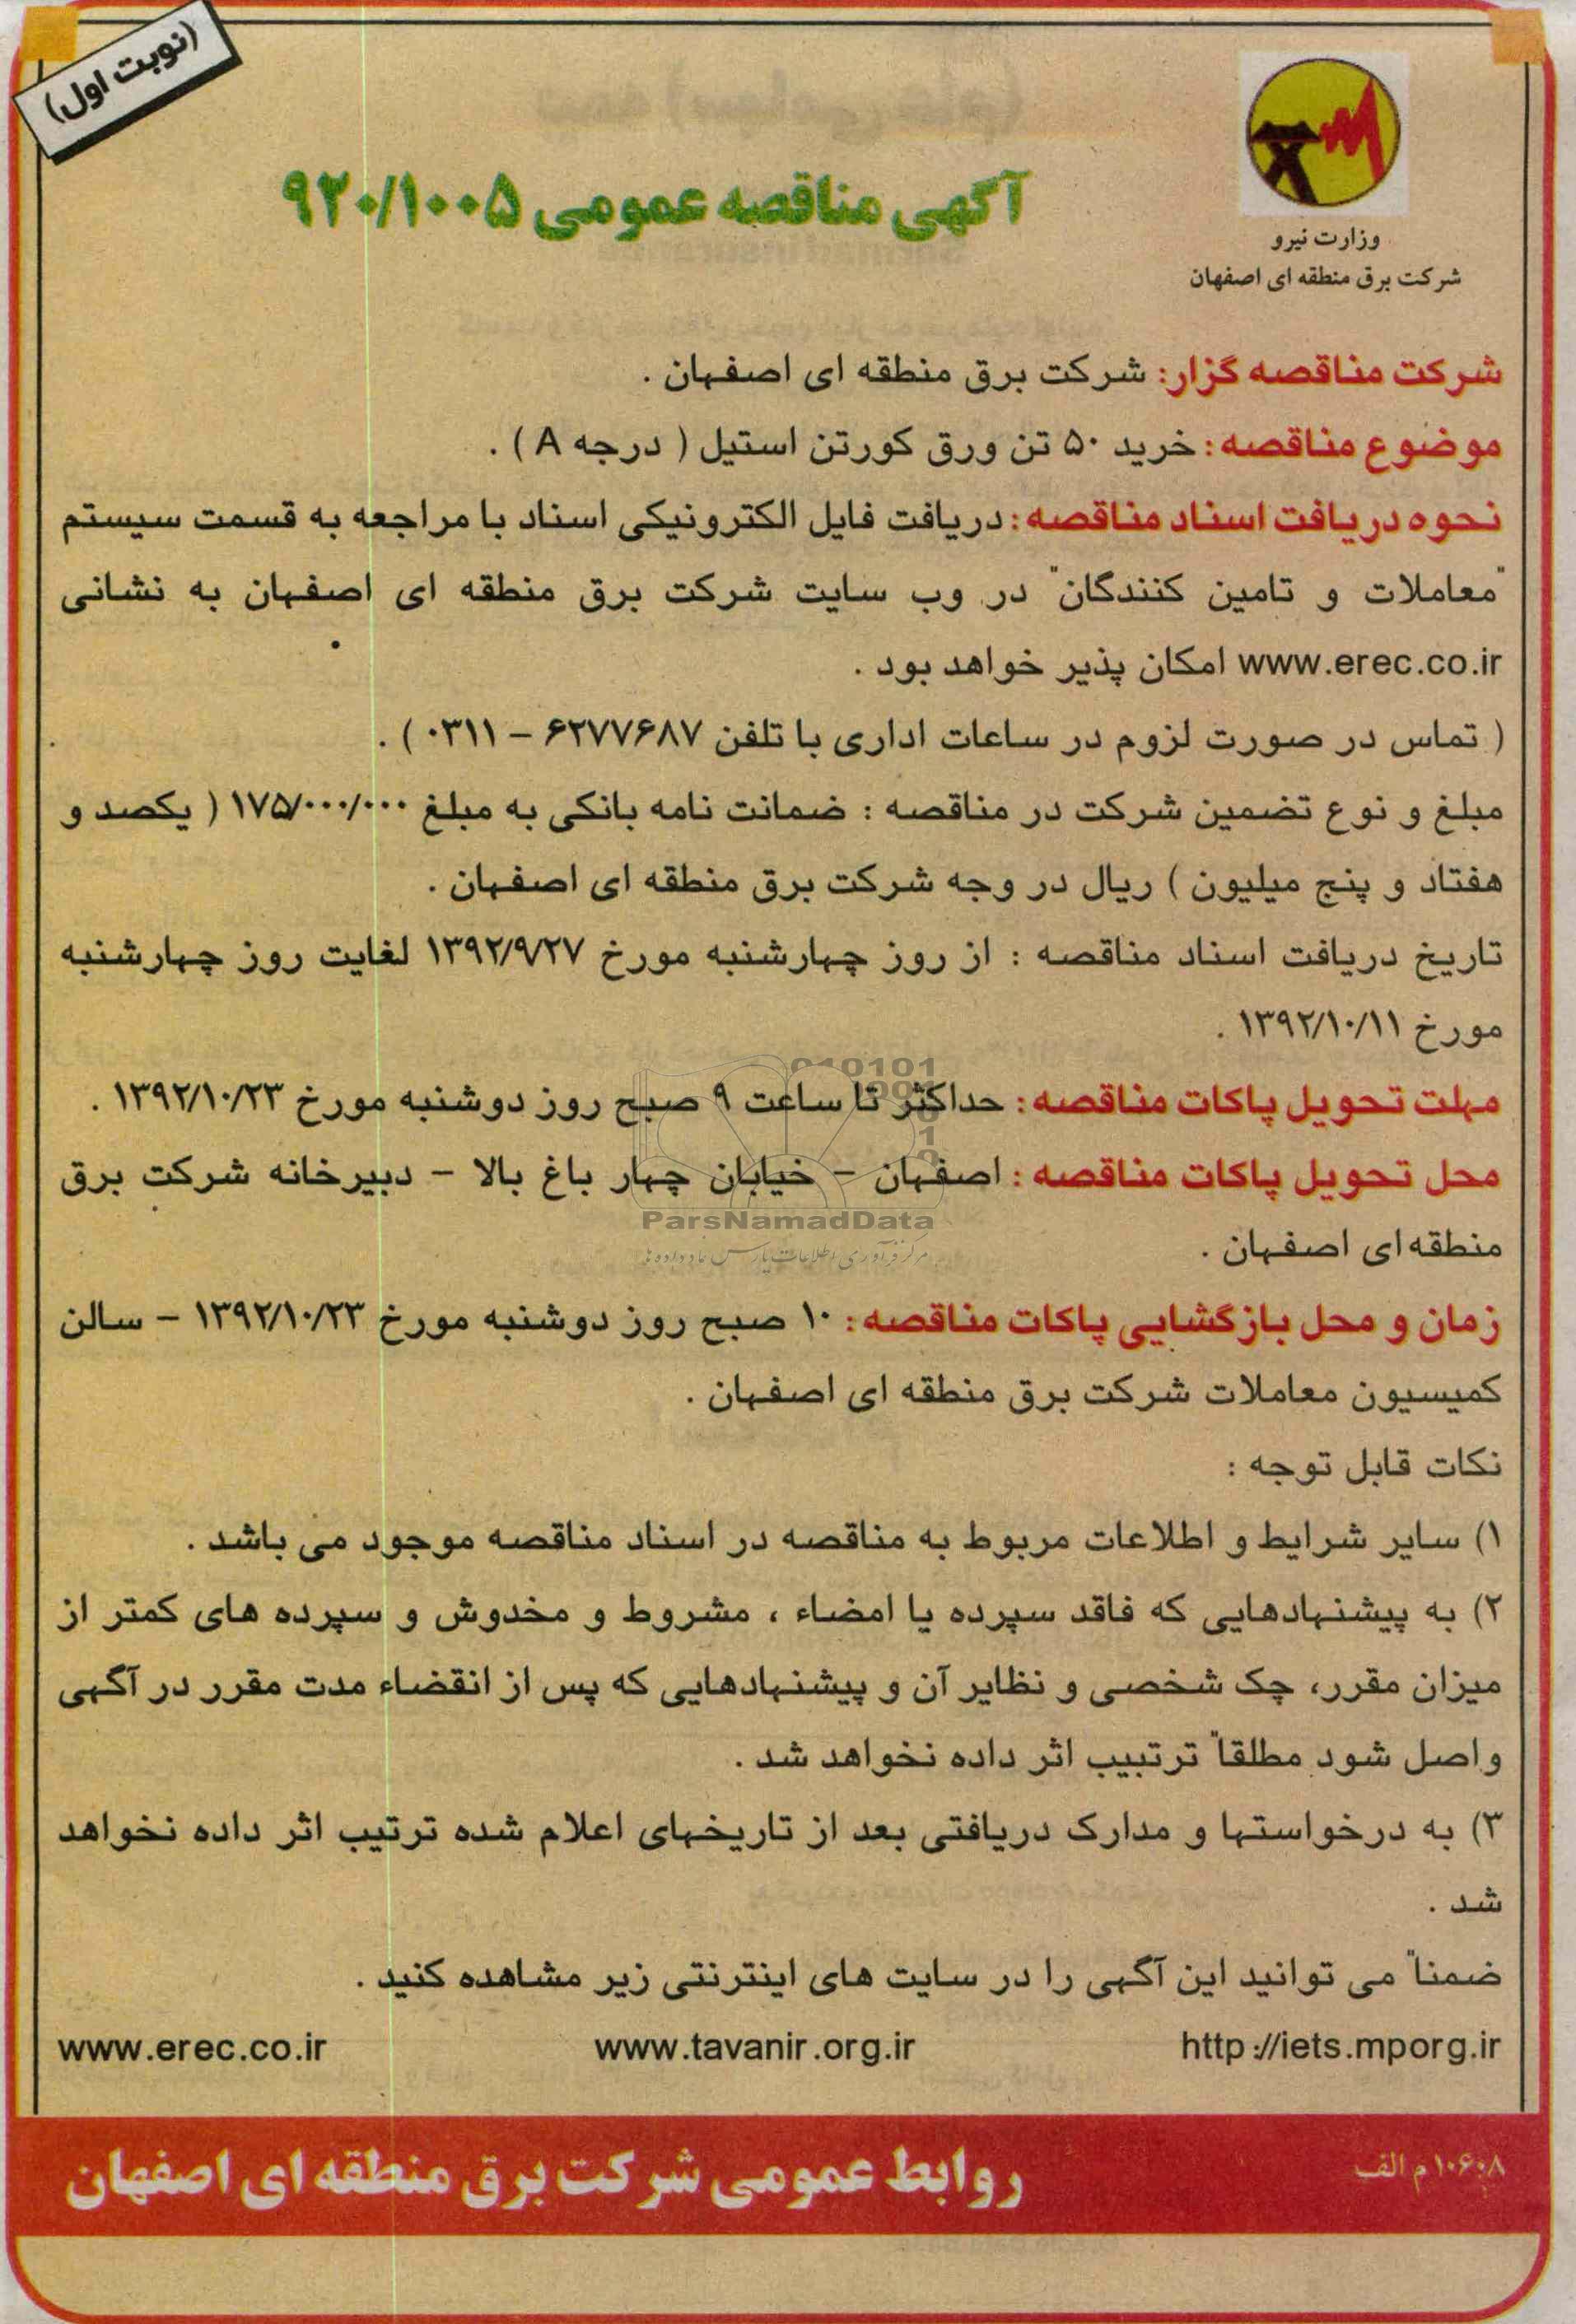 (نوبت اول)
وزارت نیرو
شرکت برق منطقه ای اصفهان
آگهی مناقصه عمومی ۹۲۰/۱۰۰۵
شرکت مناقصه گزار: شرکت برق منطقه ای اصفهان .
موضوع مناقصه: خرید ۵۰ تن ورق کورتن استیل ( درجه A ) .
نحوه دریافت اسناد مناقصه: دریافت فایل الکترونیکی اسناد با مراجعه به قسمت سیستم
"معاملات و تامین کنندگان" در وب سایت شرکت برق منطقه ای اصفهان به نشانی
www.erec.co.ir امکان پذیر خواهد بود .
( تماس در صورت لزوم در ساعات اداری با تلفن ۶۲۷۷۶۸۷ – ۰۳۱۱ ) .
مبلغ و نوع تضمین شرکت در مناقصه : ضمانت نامه بانکی به مبلغ ۱۷۵/۰۰۰/۰۰۰ ( یکصد و
هفتاد و پنج میلیون ) ریال در وجه شرکت برق منطقه ای اصفهان .
تاریخ دریافت اسناد مناقصه : از روز چهارشنبه مورخ ۱۳۹۲/۹/۲۷ لغایت روز چهارشنبه
مورخ ۱۳۹۲/۱۰/۱۱ .
مهلت تحویل پاکات مناقصه: حداکثر تا ساعت ۹ صبح روز دوشنبه مورخ ۱۳۹۲/۱۰/۲۳ .
محل تحویل پاکات مناقصه: اصفهان – خیابان چهار باغ بالا – دبیرخانه شرکت برق
منطقه ای اصفهان .
ParsNamadData
مرکز فرآوری اطلاعات پارس نماد داده ها
زمان و محل بازگشایی پاکات مناقصه: ۱۰ صبح روز دوشنبه مورخ ۱۳۹۲/۱۰/۲۳ – سالن
کمیسیون معاملات شرکت برق منطقه ای اصفهان .
نکات قابل توجه :
۱) سایر شرایط و اطلاعات مربوط به مناقصه در اسناد مناقصه موجود می باشد .
۲) به پیشنهادهایی که فاقد سپرده یا امضاء ، مشروط و مخدوش و سپرده های کمتر از
میزان مقرر، چک شخصی و نظایر آن و پیشنهادهایی که پس از انقضاء مدت مقرر در آگهی
واصل شود مطلقاً ترتبیب اثر داده نخواهد شد .
۳) به درخواستها و مدارک دریافتی بعد از تاریخهای اعلام شده ترتیب اثر داده نخواهد
شد .
ضمناً می توانید این آگهی را در سایت های اینترنتی زیر مشاهده کنید .
http://iets.mporg.ir www.tavanir.org.ir www.erec.co.ir
۱۰۶۰۸/م الف
روابط عمومی شرکت برق منطقه ای اصفهان